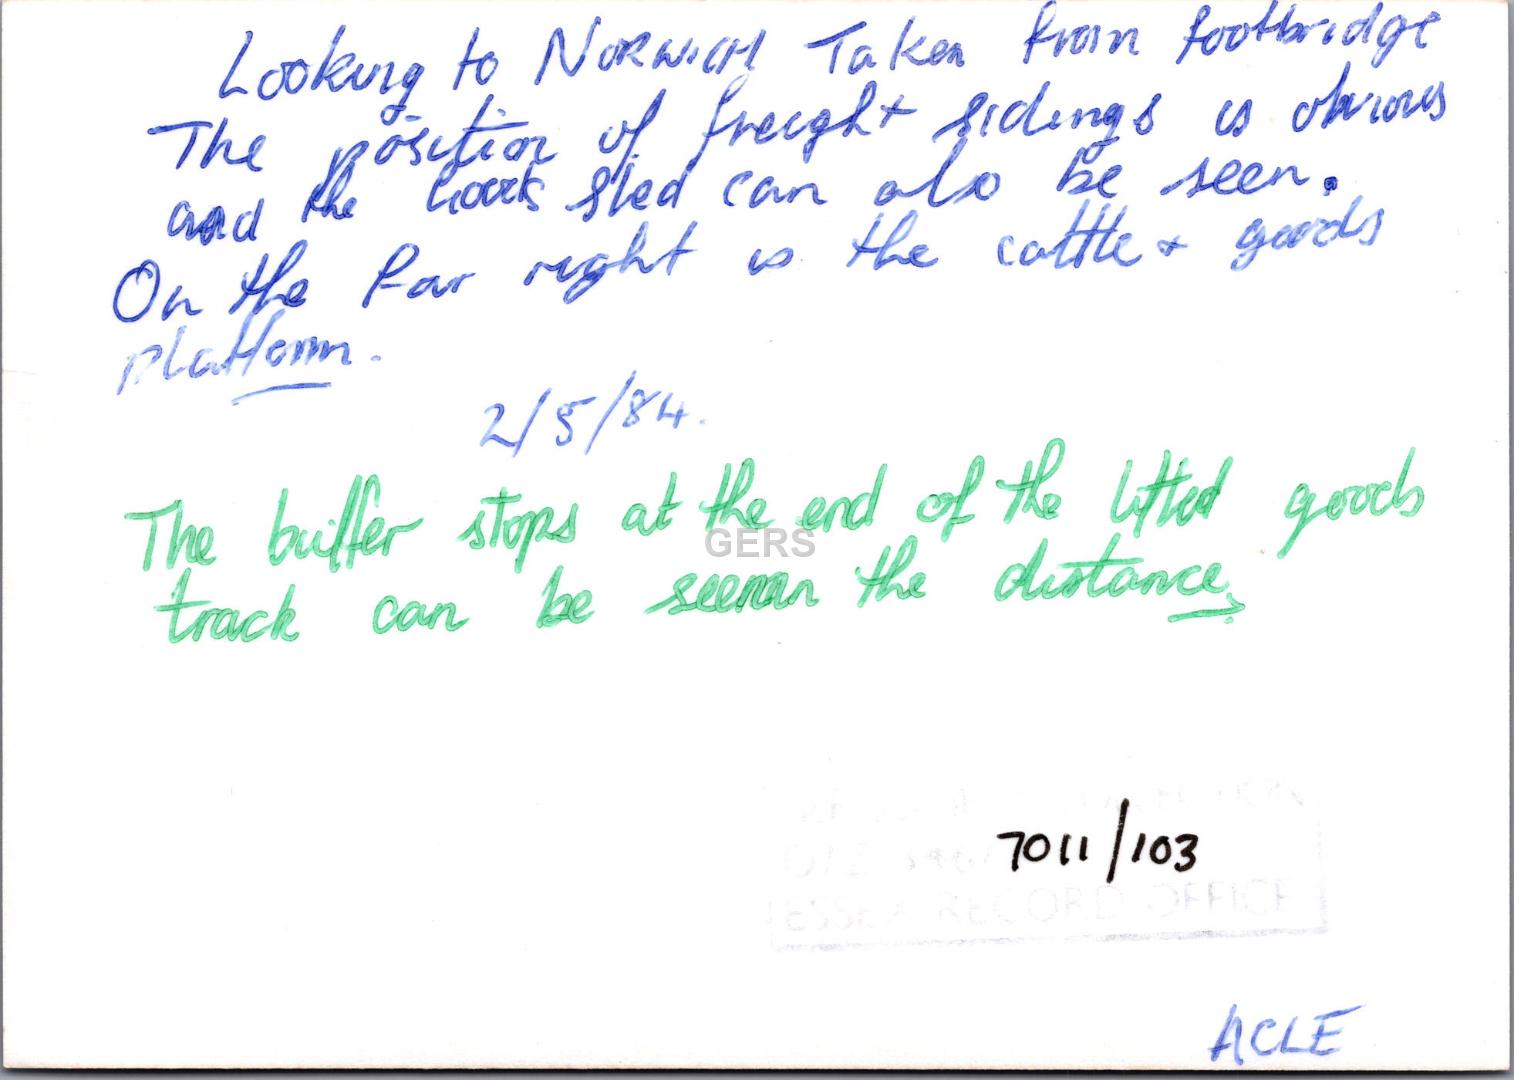 Looking to NORWICH Taken from footbridge
The position of freight sidings is obvious
and the Goods Shed can also be seen.
On the far right is the cattle + goods
platform.
2/5/84.
The buffer stops at the end of the lifted goods
GERS
track can be seen in the distance.
7011/103
ESSEX RECORD OFFICE
ACLE